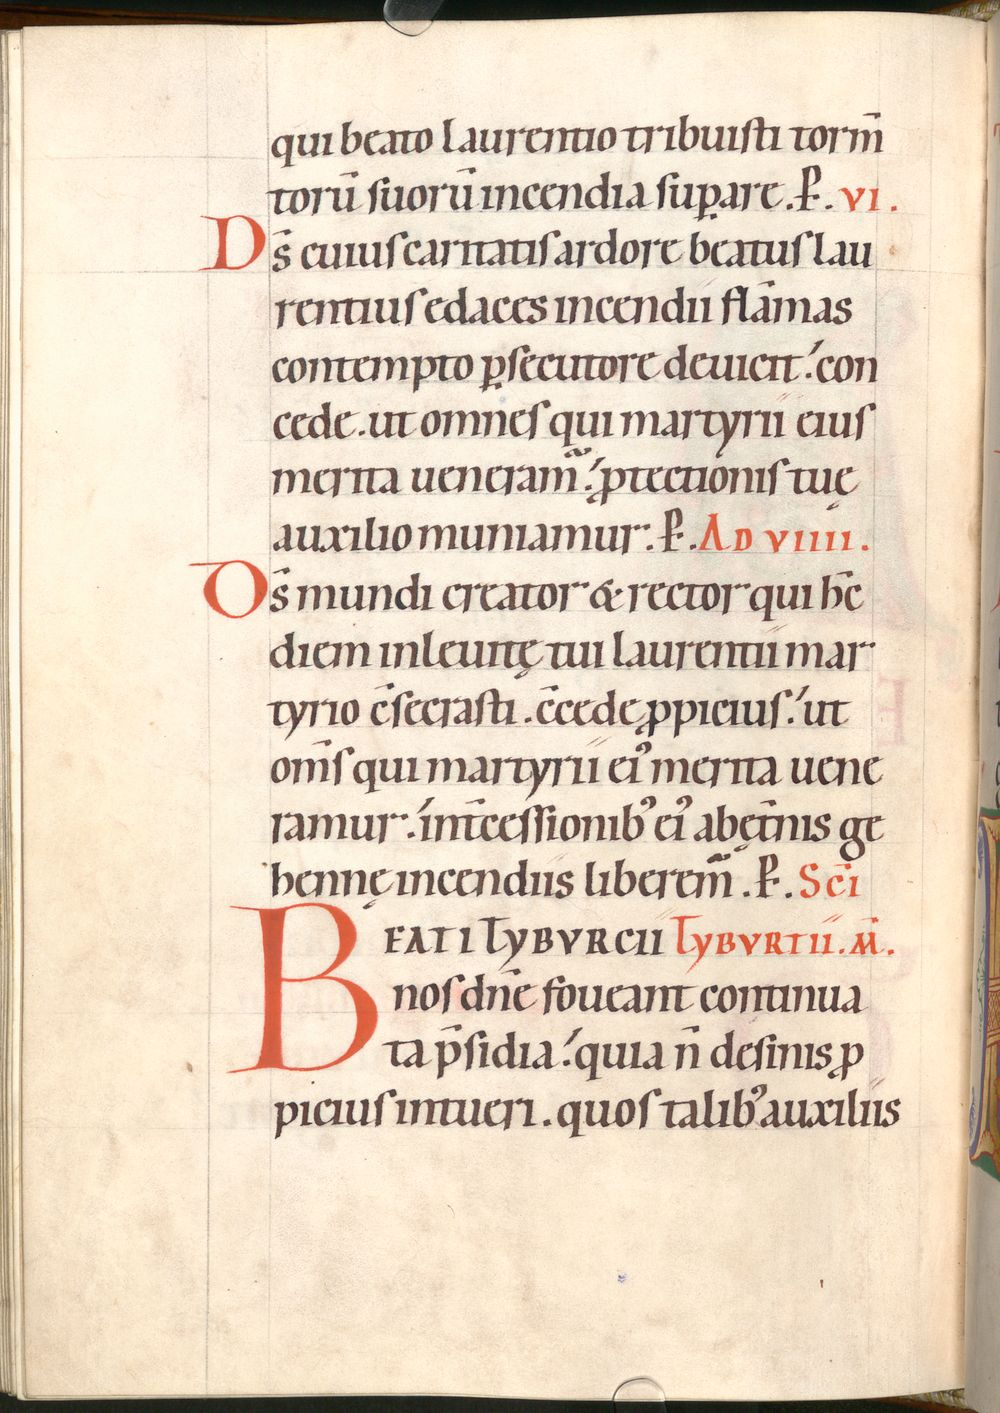 qui beato laurentio tribuisti torm̄
torū suorū incendia suꝑare. P̶. VI.
Ds̄ cuius caritatis ardore beatus lau
rentius edaces incendii flāmas
contempto ꝑsecutore deuicit. con
cede. ut omnes qui martyrii eius
merita ueneram᷑. ꝓtectionis tuę
auxilio muniamur. P̶. AD VIIII.
Ds̄ mundi creator & rector qui hc̄
diem in leuitę tui laurentii mar
tyrio c̄secrasti. c̄cede ꝓpicius. ut
om̄s qui martyrii eiꝰ merita uene
ramur. int̄cessionibꝰ eiꝰ ab ęt̄nis ge
hennę incendiis liberem᷑. P̶. Sc̄i
BEATI TyBVRCII TyBVRTII. M̄.
nos dn̄e foueant continua
ta p̄sidia. quia n̄ desinis ꝓ
picius intueri. quos talibꝰ auxiliis